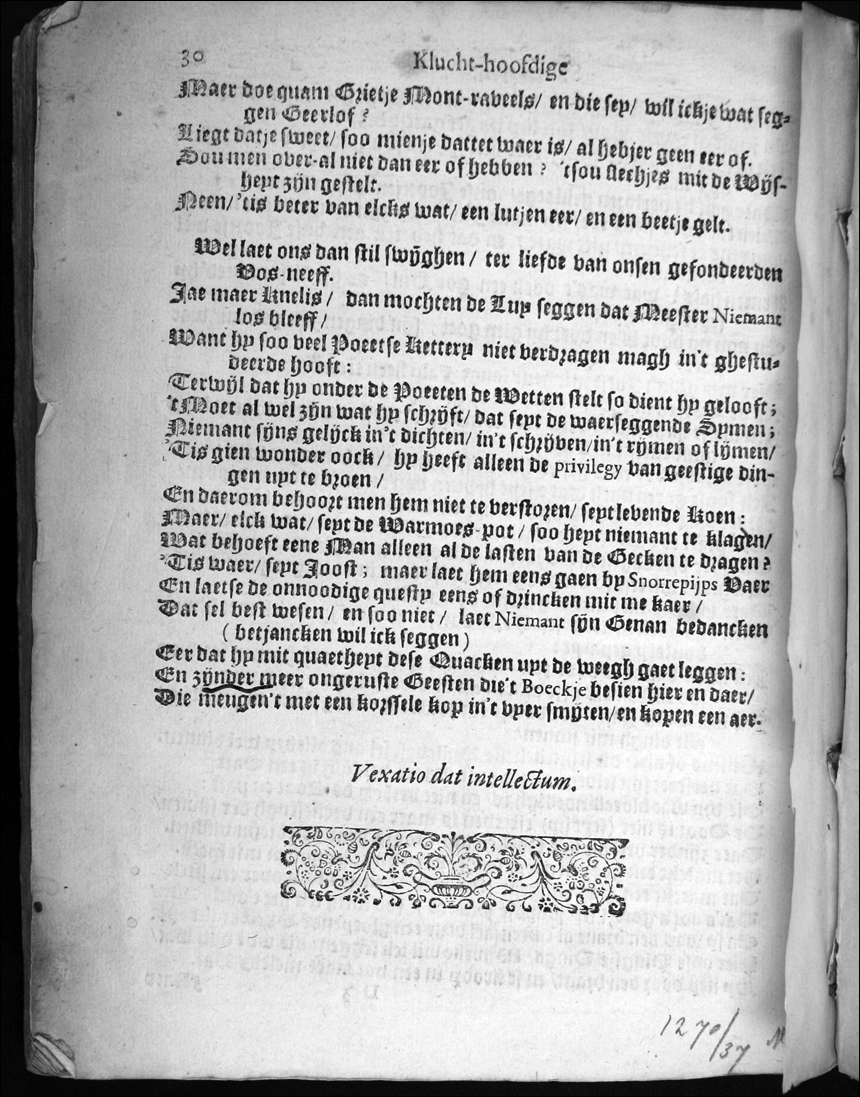 30
Klucht-hoofdige
Maer doe quam Grietje Mont-raveels/ en die sey/ wil ick je wat seg-
gen Geerlof?
Liegt datje sweet/ soo mienje dattet waer is/ al hebjer geen eer of.
Sou men over-al niet dan eer of hebben? 'tsou slechjes mit de Wijs-
heyt zijn gestelt.
Neen/ 'tis beter van elcks wat/ een lutjen eer/ en een beetje gelt.
Wel laet ons dan stil swijghen/ ter liefde van onsen gefondeerden
Vos-neeff.
Jae maer Knelis/ dan mochten de Luy seggen dat Meester Niemant
los bleeff/
Want hy soo veel Poeetse Kettery niet verdragen magh in't ghestu-
deerde hooft:
Terwijl dat hy onder de Poeeten de Wetten stelt so dient hy gelooft;
't Moet al wel zijn wat hy schrijft/ dat seyt de waerseggende Symen;
Niemant sijns gelijck in't dichten/ in't schrijven/ in't rijmen of lijmen/
'Tis gien wonder oock/ hy heeft alleen de privilegy van geestige din-
gen uyt te broen/
En daerom behoort men hem niet te verstoren/ seyt levende Koen:
Maer/ elck wat/ seyt de Warmoes-pot/ soo heyt niemant te klagen/
Wat behoeft eene Man alleen al de lasten van de Gecken te dragen?
'Tis waer/ seyt Joost; maer laet hem eens gaen by Snorrepijps Vaer
En laetse de onnoodige questy eens of drincken mit me kaer/
Dat sel best wesen/ en soo niet/ laet Niemant sijn Genan bedancken
(betjancken wil ick seggen)
Eer dat hy mit quaetheyt dese Quacken uyt de weegh gaet leggen:
En zijnder meer ongeruste Geesten die't Boeckje besien hier en daer/
Die meugen't met een korssele kop in't vyer smijten/ en kopen een aer.
Vexatio dat intellectum.
1270/37